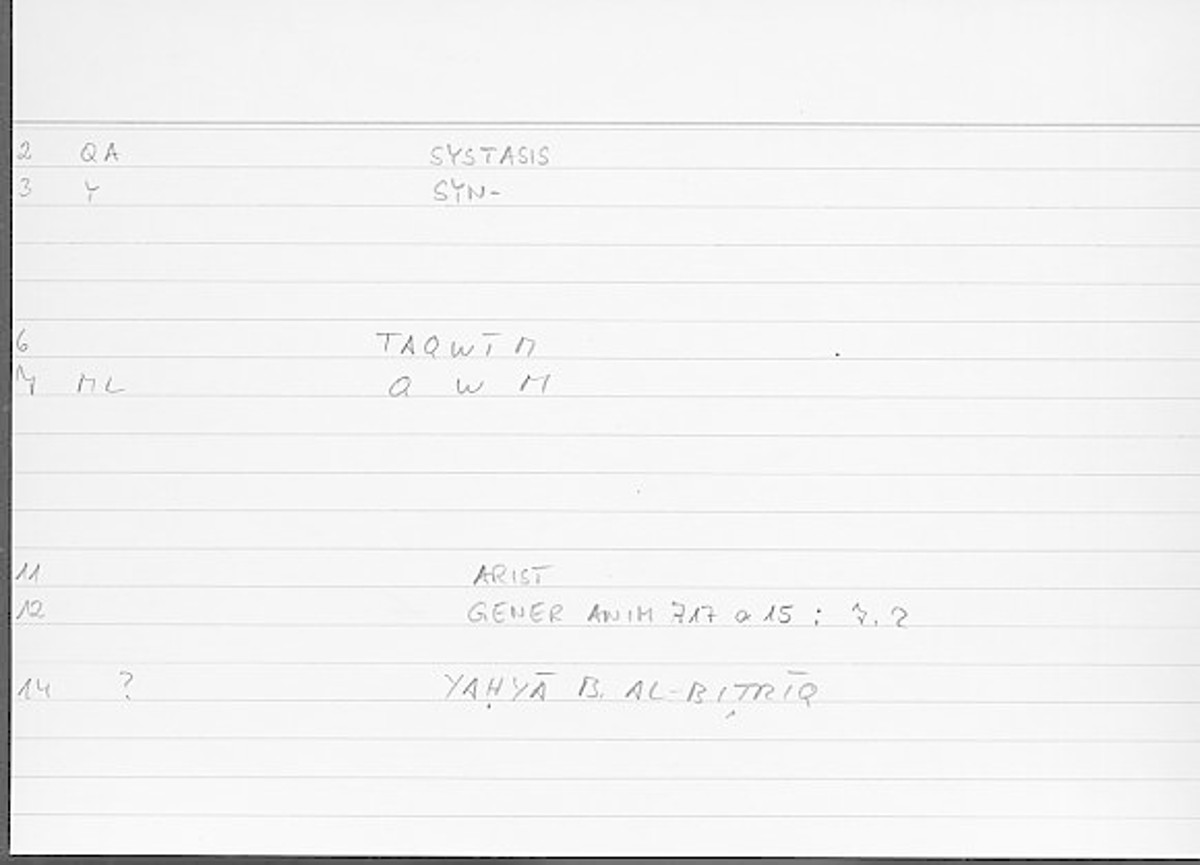 2 QA SYSTASIS
3 Y SYN-
6 TAQWĪM
7 ML Q W M
11 ARIST
12 GENER ANIM 717 a 15 : 7.2
14 ? YAḤYĀ B. AL-BIṬRĪQ